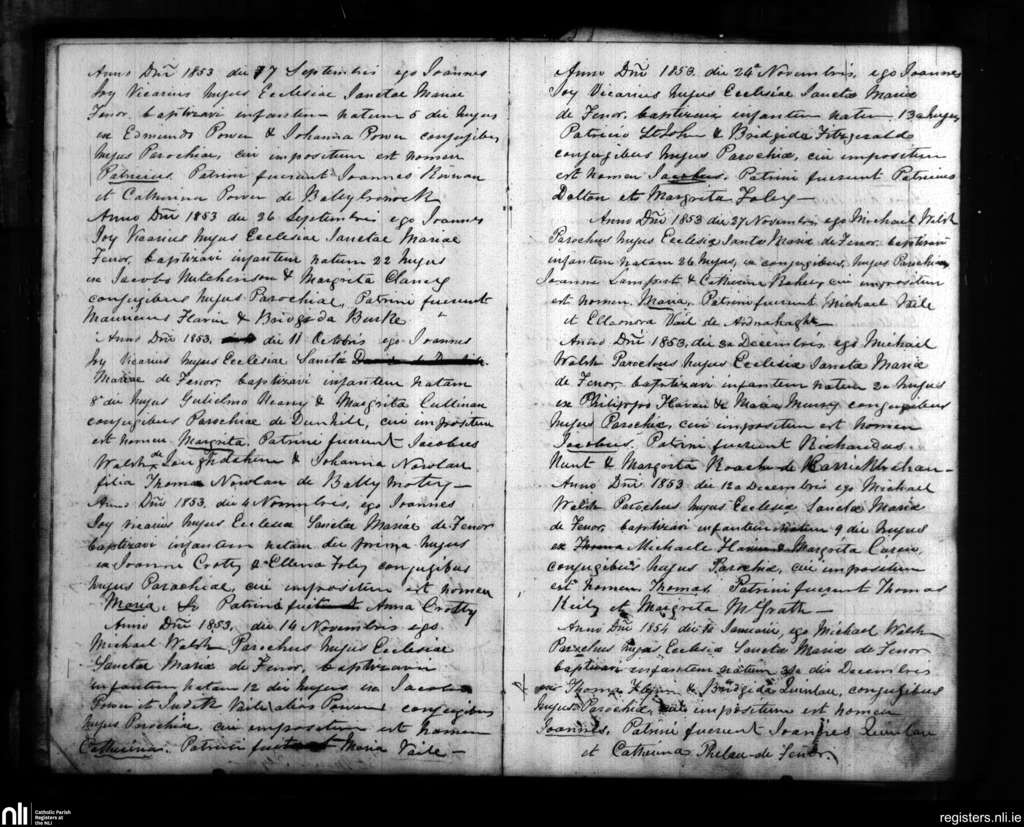 Anno Dñi 1853 die 17 Septembris ego Joannes
Joy Vicarius hujus Ecclesiae Sanctae Mariae
Fenor, baptizavi infantem natum 5 die hujus
ex Edmundo Power & Johanna Power conjugibus
hujus Parochiae, cui impositum est nomen
Patricius. Patrini fuerunt Joannes
et Catherina Power de
Anno Dñi 1853 die 26 Septembris ego Joannes
Joy Vicarius hujus Ecclesiae Sanctae Mariae
Fenor, baptizavi infantem natum 22 hujus
ex Jacobo Hutchenson & Margrita Clancy
conjugibus hujus Parochiae, Patrini fuerunt
Mauricius Flavin & Bridgida Burke
Anno Dñi 1853. die 11 Octobris ego Joannes
Joy Vicarius hujus Ecclesiae Sanctae
Mariae de Fenor, baptizavi infantem natam
8 die hujus Gulielmo & Margrita Cullinan
conjugibus Parochiae de Dunhill, cui impositum
est nomen Margrita. Patrini fuerunt Jacobus
Walsh de & Johanna Nowlan
filia Thoma Nowlan de
Anno Dñi 1853. die 4 Novembris, ego Joannes
Joy vicarius hujus Ecclesiae Sanctae Mariae de Fenor
baptizavi infantem natam die prima hujus
ex Joanne Crotty & Ellena Foley conjugibus
hujus Parochiae, cui impositum est nomen
Maria, Patrini Anna Crotty
Anno Dñi 1853. die 14 Novembris ego
Michael Walsh Parochus hujus Ecclesiae
Sanctae Maria de Fenor, baptizavi
infantem natam 12 die hujus ex Jacobo
Power et Judith Vaile alias Power conjugibus
hujus Parochiae, cui impositum est nomen
Catherina. Patrini Maria Vaile —
Anno Dñi 1853. die 24ª Novembris, ego Joannes
Joy Vicarius hujus Ecclesiae Sancta Maria
de Fenor, baptizavi infantem natum 13a hujus,
Patricio & Bridgida Fitzgerald
conjugibus hujus Parochiae, cui impositum
est nomen Jacobus. Patrini fuerunt Patricius
Dalton et Margrita Foley —
Anno Dñi 1853 die 27 Novembris ego Michael Walsh
Parochus hujus Ecclesia Sanctæ Maria de Fenor, baptizavi
infantem natam 26 hujus, ex conjugibus, hujus Parochiæ
Joanne & Catherina cui impositum
est nomen, Maria, Patrini fuerunt Michael Vaile
et Elleanora Vail de
Anno Dñi 1853, die 3a Decembris, ego Michael
Walsh Parochus hujus Ecclesia Sancta Maria
de Fenor, baptizavi infantem natum 2a hujus
ex & Maria conjugibus
hujus Parochia, cui impositum est nomen
Jacobus, Patrini fuerunt Richardus
& Margrita Roach de
Anno Dñi 1853 die 12a Decembris ego Michael
Walsh Parochus hujus Ecclesia Sancta Maria
de Fenor, baptizavi infantem natum 9 die hujus
ex Michaele & Margrita
conjugibus hujus Parochiæ, cui impositum
est nomen Thomas. Patrini fuerunt Thomas
Kiely et Margrita McGrath —
Anno Dñi 1854 die Januarii, ego Michael Walsh
Parochus hujus Ecclesia Sancta Maria de Fenor
baptizavi infantem natum die Decembris
Thoma & Bridgida Quinlan, conjugibus
hujus Parochia, impositum est nomen
Joannes. Patrini fuerunt Joannes Quinlan
et Catherina Phelan de Fenor.
nli
Catholic Parish
Registers at
the NLI
registers.nli.ie